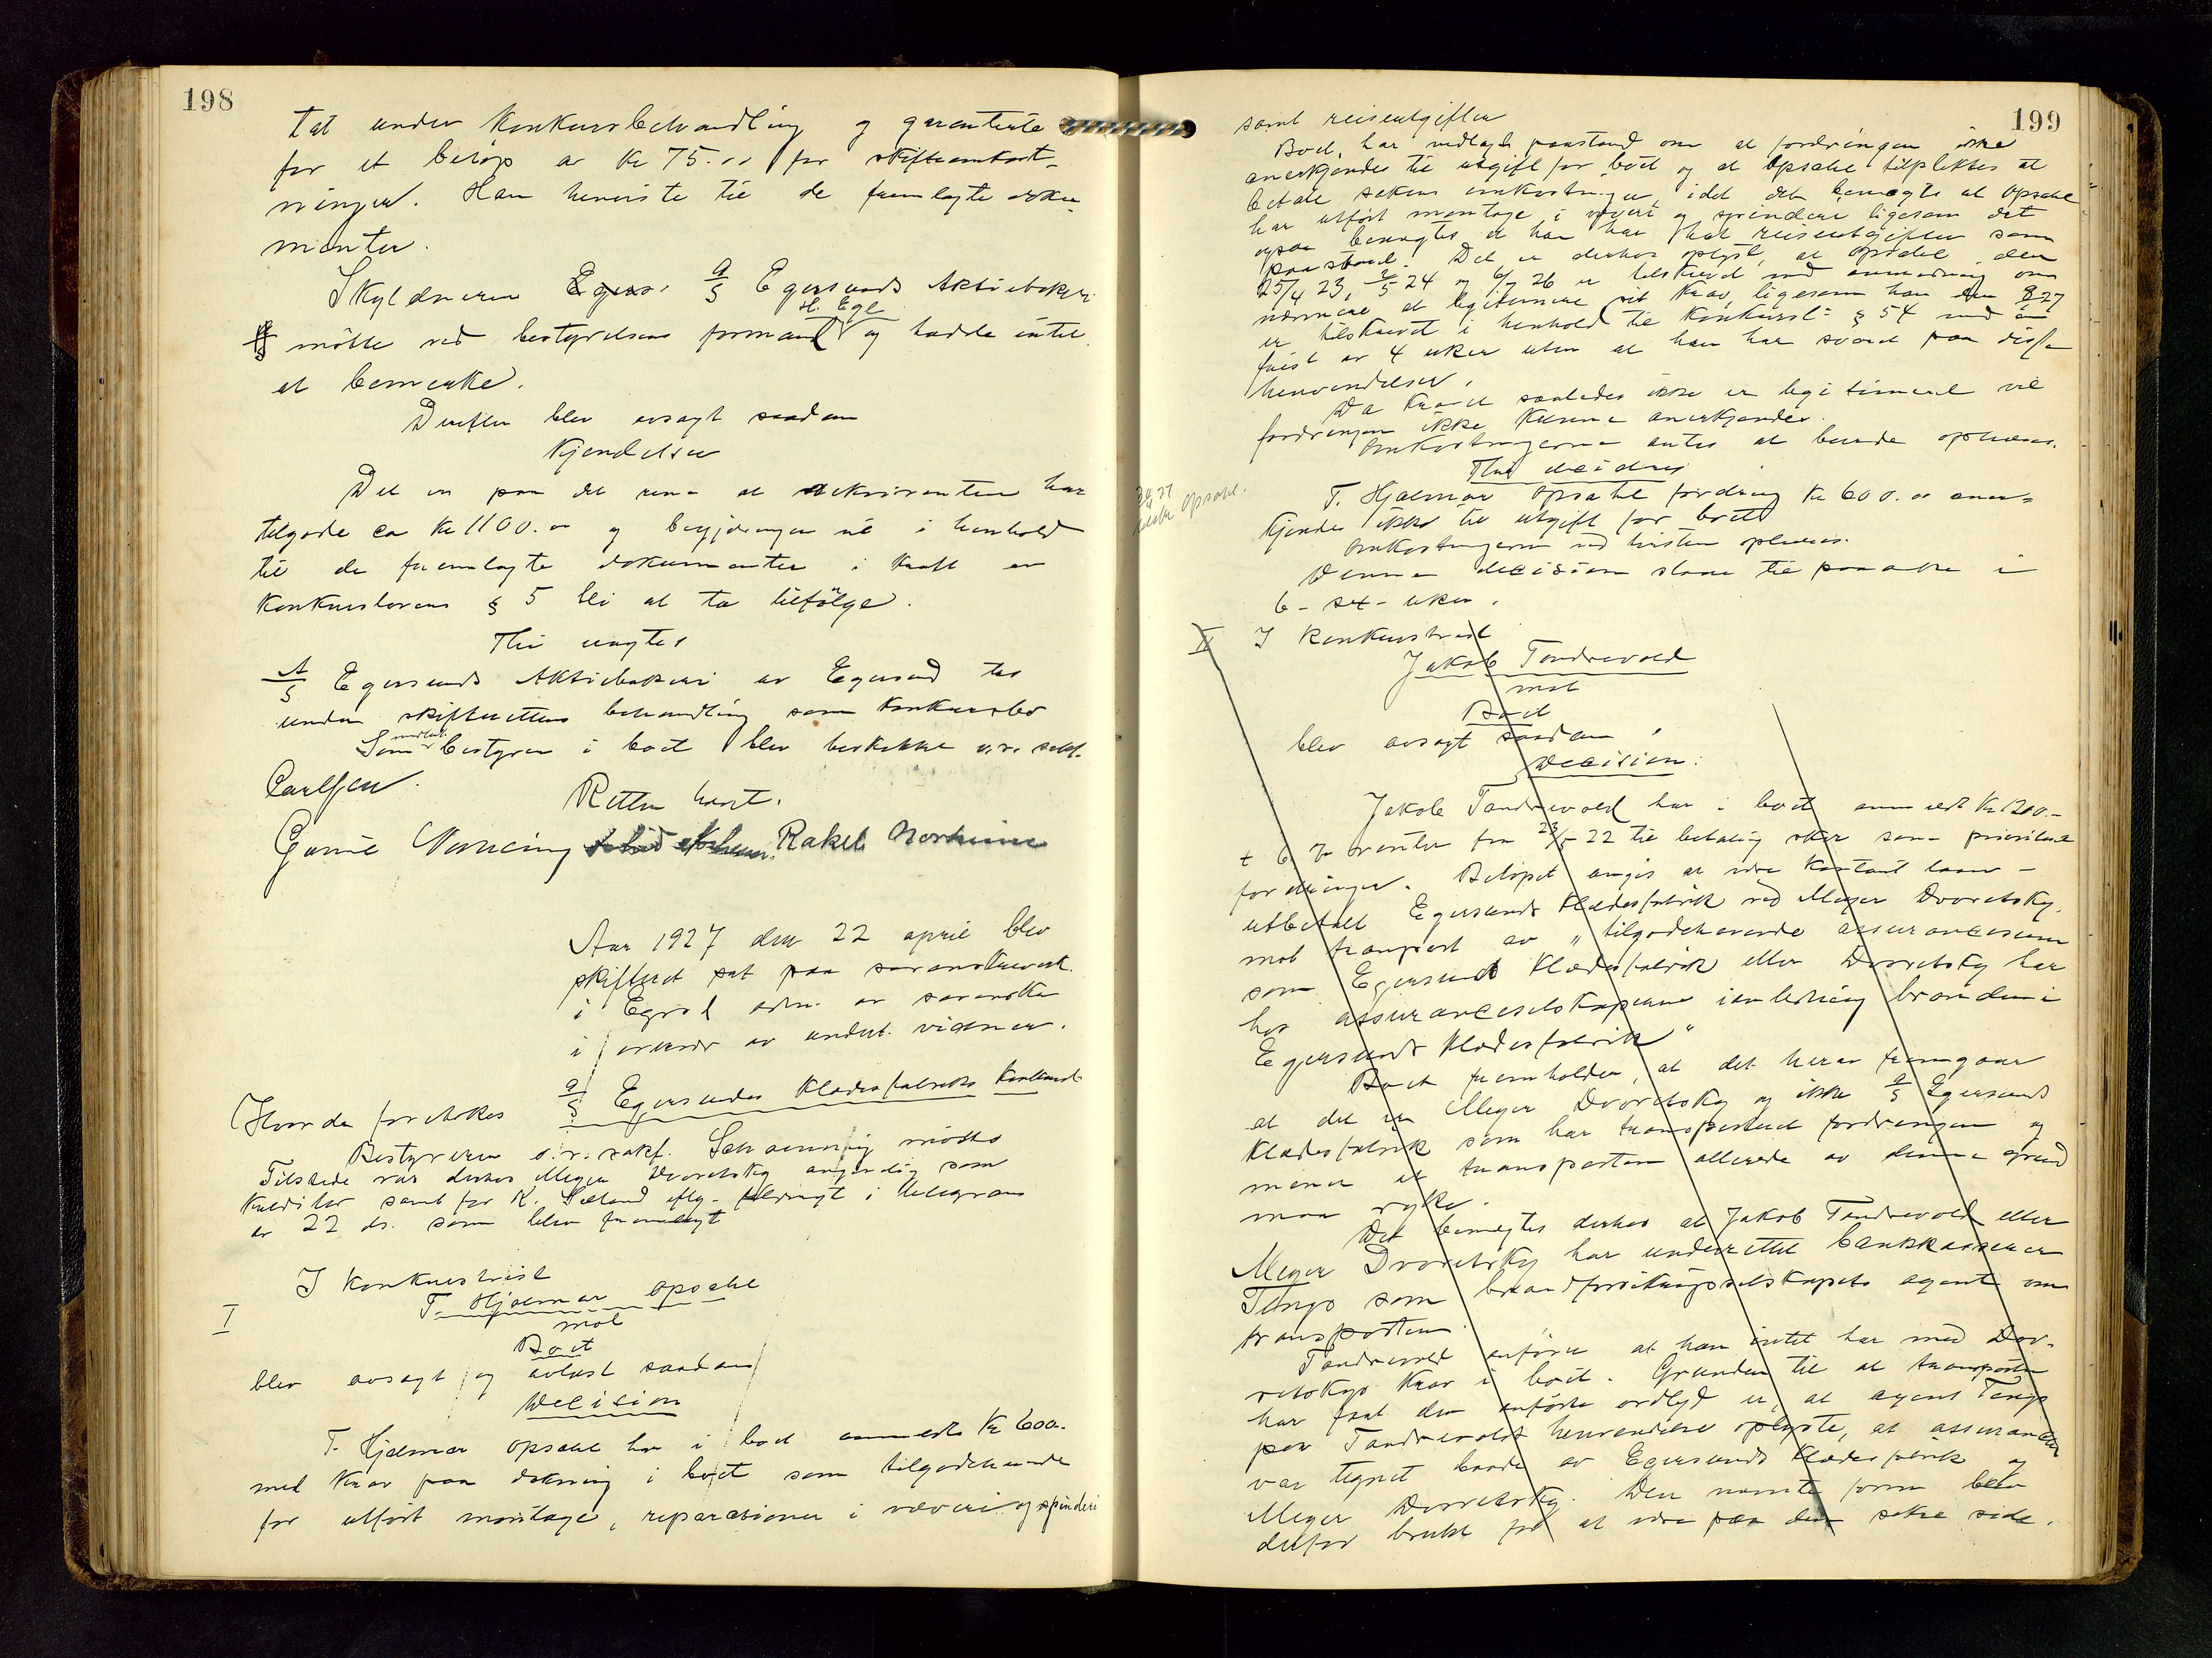 198
tat under konkursbehandling og garanterte
for et beløp av kr 75.00 for skifteomkost-
ninger. Han henviste til de fremlagte doku-
menter.
Skyldneren A/S Egersunds Aktiebakeri
H. Egl
møtte ved bestyrelsens formand og hadde intet
at bemerke.
Derefter blev avsagt saadan
Kjendelse
Det er paa det rene at rekvirenten har
tilgode ca kr 1100.00 og begjæringen vil i henhold
til de fremlagte dokumenter i kraft av
konkurslovens § 5 bli at ta tilfølge.
Thi eragtes
A/S Egersunds Aktiebakeri av Egersund tas
under skifterettens behandling som konkursbo
Som midlert. bestyrer i boet blev beskikket o.r. sakf.
Carlsen.
Retten hævt.
Rakel
Aar 1927 den 22 april blev
skifteret sat paa sorenskriverk.
i Egrsd adm. av sorenskr
i overvær av undert. vidner.
Hvorda foretokes A/S Egersunds Klædesfabriks konkursbo
Bestyreren o.r. sakf. Schanning møtte
Tilstede var derhos Meyer Dvoretsky angivelig som
kreditor samt for K. Sæland eftg. i telegram
av 22 ds. som blev fremlagt
I Konkurstvist
I
T. Hjalmar Opsahl
mot
Boet
blev avsagt og avlæst saadan
Decision
T. Hjalmar Opsahl har i boet anmeldt kr 600.-
med krav paa dækning i boet som tilgodehavende
for utført montage, reparasioner i væveri og spinderi
199
samt reiseutgifter
Boet har nedlagt paastand om at fordringen ikke
anerkjendes til utgift for boet og at Opsahl tilpliktes at
betale sakens omkostninger, idet det benegtes at Opsahl
har utført montage i væveri og spinderi ligesom det
ogsaa benegtes at han har hat reiseutgifter som
paastaat. Det er derhos oplyst, at Opsahl den
25/4 23, 2/5 24 og 6/7 26 er tilskrevet med anmodning om
nærmere at legitimere sit krav, ligesom han den
er tilskrevet i henhold til Konkursl. § 54 med en
frist av 4 uker uten at han har svaret paa disse
henvendelser.
Da kravet saaledes ikke er legitimeret vil
fordringen ikke kunne anerkjendes.
Omkostningerne antes at burde ophæves.
Thi decidres
T. Hjalmar Opsahl fordring kr 600.00 aner-
kjendes ikke til utgift for boet
Omkostningerne ved tvisten ophæves.
Denne decision staar til paaanke i
6 - sex - uker.
II I Konkurstvist
Jakob Tandrevold
mot
Boet
blev avsagt saadan
Decision:
Jakob Tandrevold har i boet anmeldt kr 1200.-
+ 6 % renter fra 23/5 22 til betaling sker som prioritert
fordringer. Beløpet angis at være kontant laan -
utbetalt Egersunds Klædesfabrik ved Meyer Dvoretsky.
mot transport av "tilgodehavende assurancesum
som Egersunds Klædesfabrik eller Dvoretsky har
hos assuranceselskaperne i anledning branden i
Egersunds Klædesfabrik"
Boet fremholder, at det herav fremgaar
at det er Meyer Dvoretsky og ikke A/S Egersunds
Klædesfabrik som har transporteret fordringen og
mener at transporten allerede av denne grund
maa ryke.
Det benegtes derhos at Jakob Tandrevold eller
Meyer Dvoretsky har underrettet bankkasserer
Tengs som brandforsikringsselskapets agent om
transporten.
Tandrevold anfører at han intet har med Dvo-
retskys krav i boet. Grunden til at transporten
har faat den anførte ordlyd er, at agent Tengs
paa Tandrevolds henvendelse oplyste, at assurancen
var tegnet baade av Egersunds Klædesfabrik og
Meyer Dvoretsky. Den nævnte form blev
derfor brukt for at være paa den sikre side.